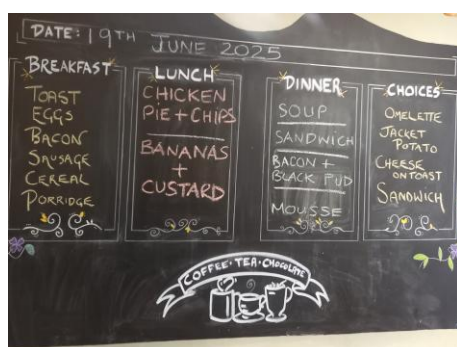 DATE: 19TH JUNE 2025
BREAKFAST
TOAST
EGGS
BACON
SAUSAGE
CEREAL
PORRIDGE
LUNCH
CHICKEN
PIE + CHIPS
BANANAS
+
CUSTARD
DINNER
SOUP
SANDWICH
BACON +
BLACK PUD
MOUSSE
CHOICES
OMELETTE
JACKET
POTATO
CHEESE
ON TOAST
SANDWICH
COFFEE · TEA · CHOCOLATE